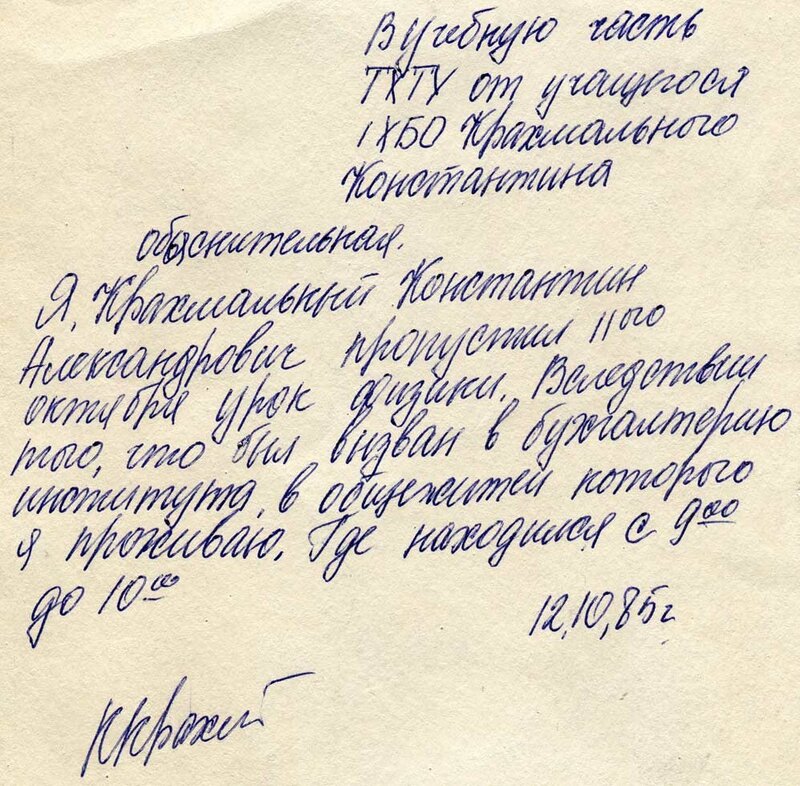 В учебную часть
ТХТУ от учащегося
IХБО Крахмального
Константина
объяснительная.
Я, Крахмальный Константин
Александрович пропустил 11ого
октября урок физики. Вследствии
того, что был вызван в бухгалтерию
института, в общежитей которого
я проживаю. Где находился с 9⁰⁰
до 10⁰⁰
12.10.85г
ККрахм